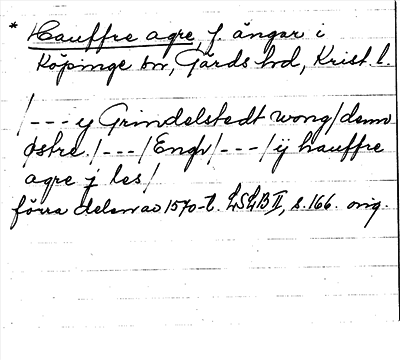 * Hauffre agre, f. ängar i
Köpinge sn, Gärds hd, Krist. l.
/--- y Grindelstedt wong/denn
østre./---/Engh/---/ÿ hauffre
agre j les/
förra delen av 1570-t. LSLB II, s. 166. orig.